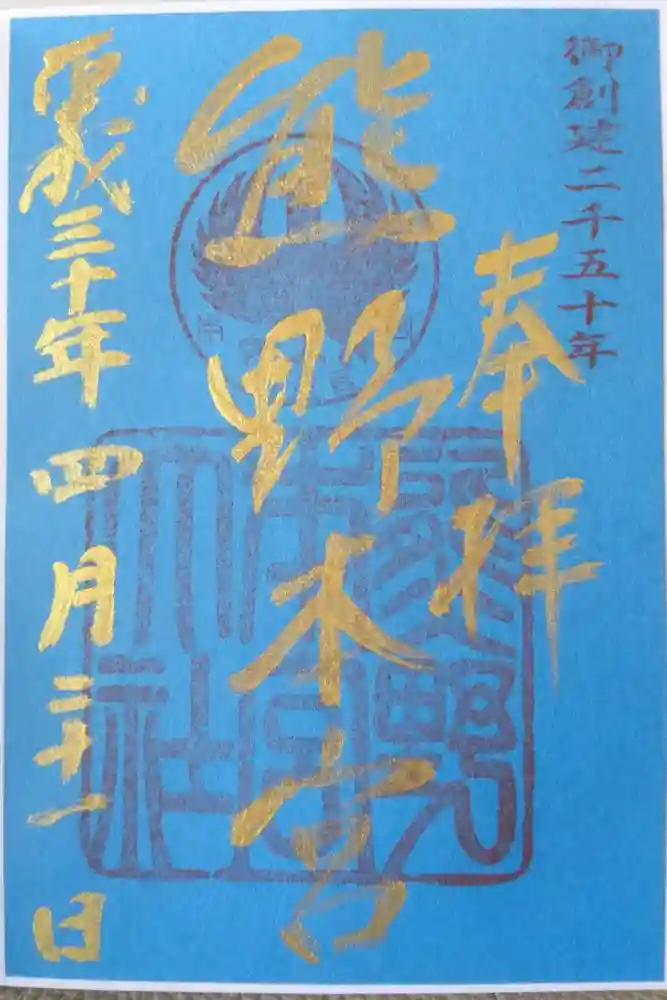 御創建二千五十年
奉拝
熊野本宮
平成三十年四月二十一日
熊野
本宮
大社